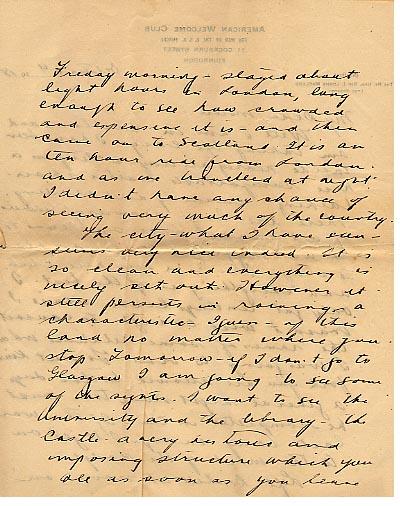 Friday morning - stayed about
eight hours in London, long
enough to see how crowded
and expensive it is - and then
came on to Scotland. It is an
ten hour ride from London.
and as we travelled at night
I didn't have any chance of
seeing very much of the country.
The city - what I have seen -
seems very nice indeed. It is
so clean and everything is
nicely set out. However it
still persists in raining - a
characteristic - I guess - of this
land no matter where you
stop. Tomorrow - if I don't go to
Glasgow I am going to see some
of the sights. I want to see the
University and the library - the
Castle - a very historic and
imposing structure which you
see as soon as you leave
AMERICAN WELCOME CLUB
FOR MEN OF THE U.S.A. FORCES
11 COCKBURN STREET
EDINBURGH